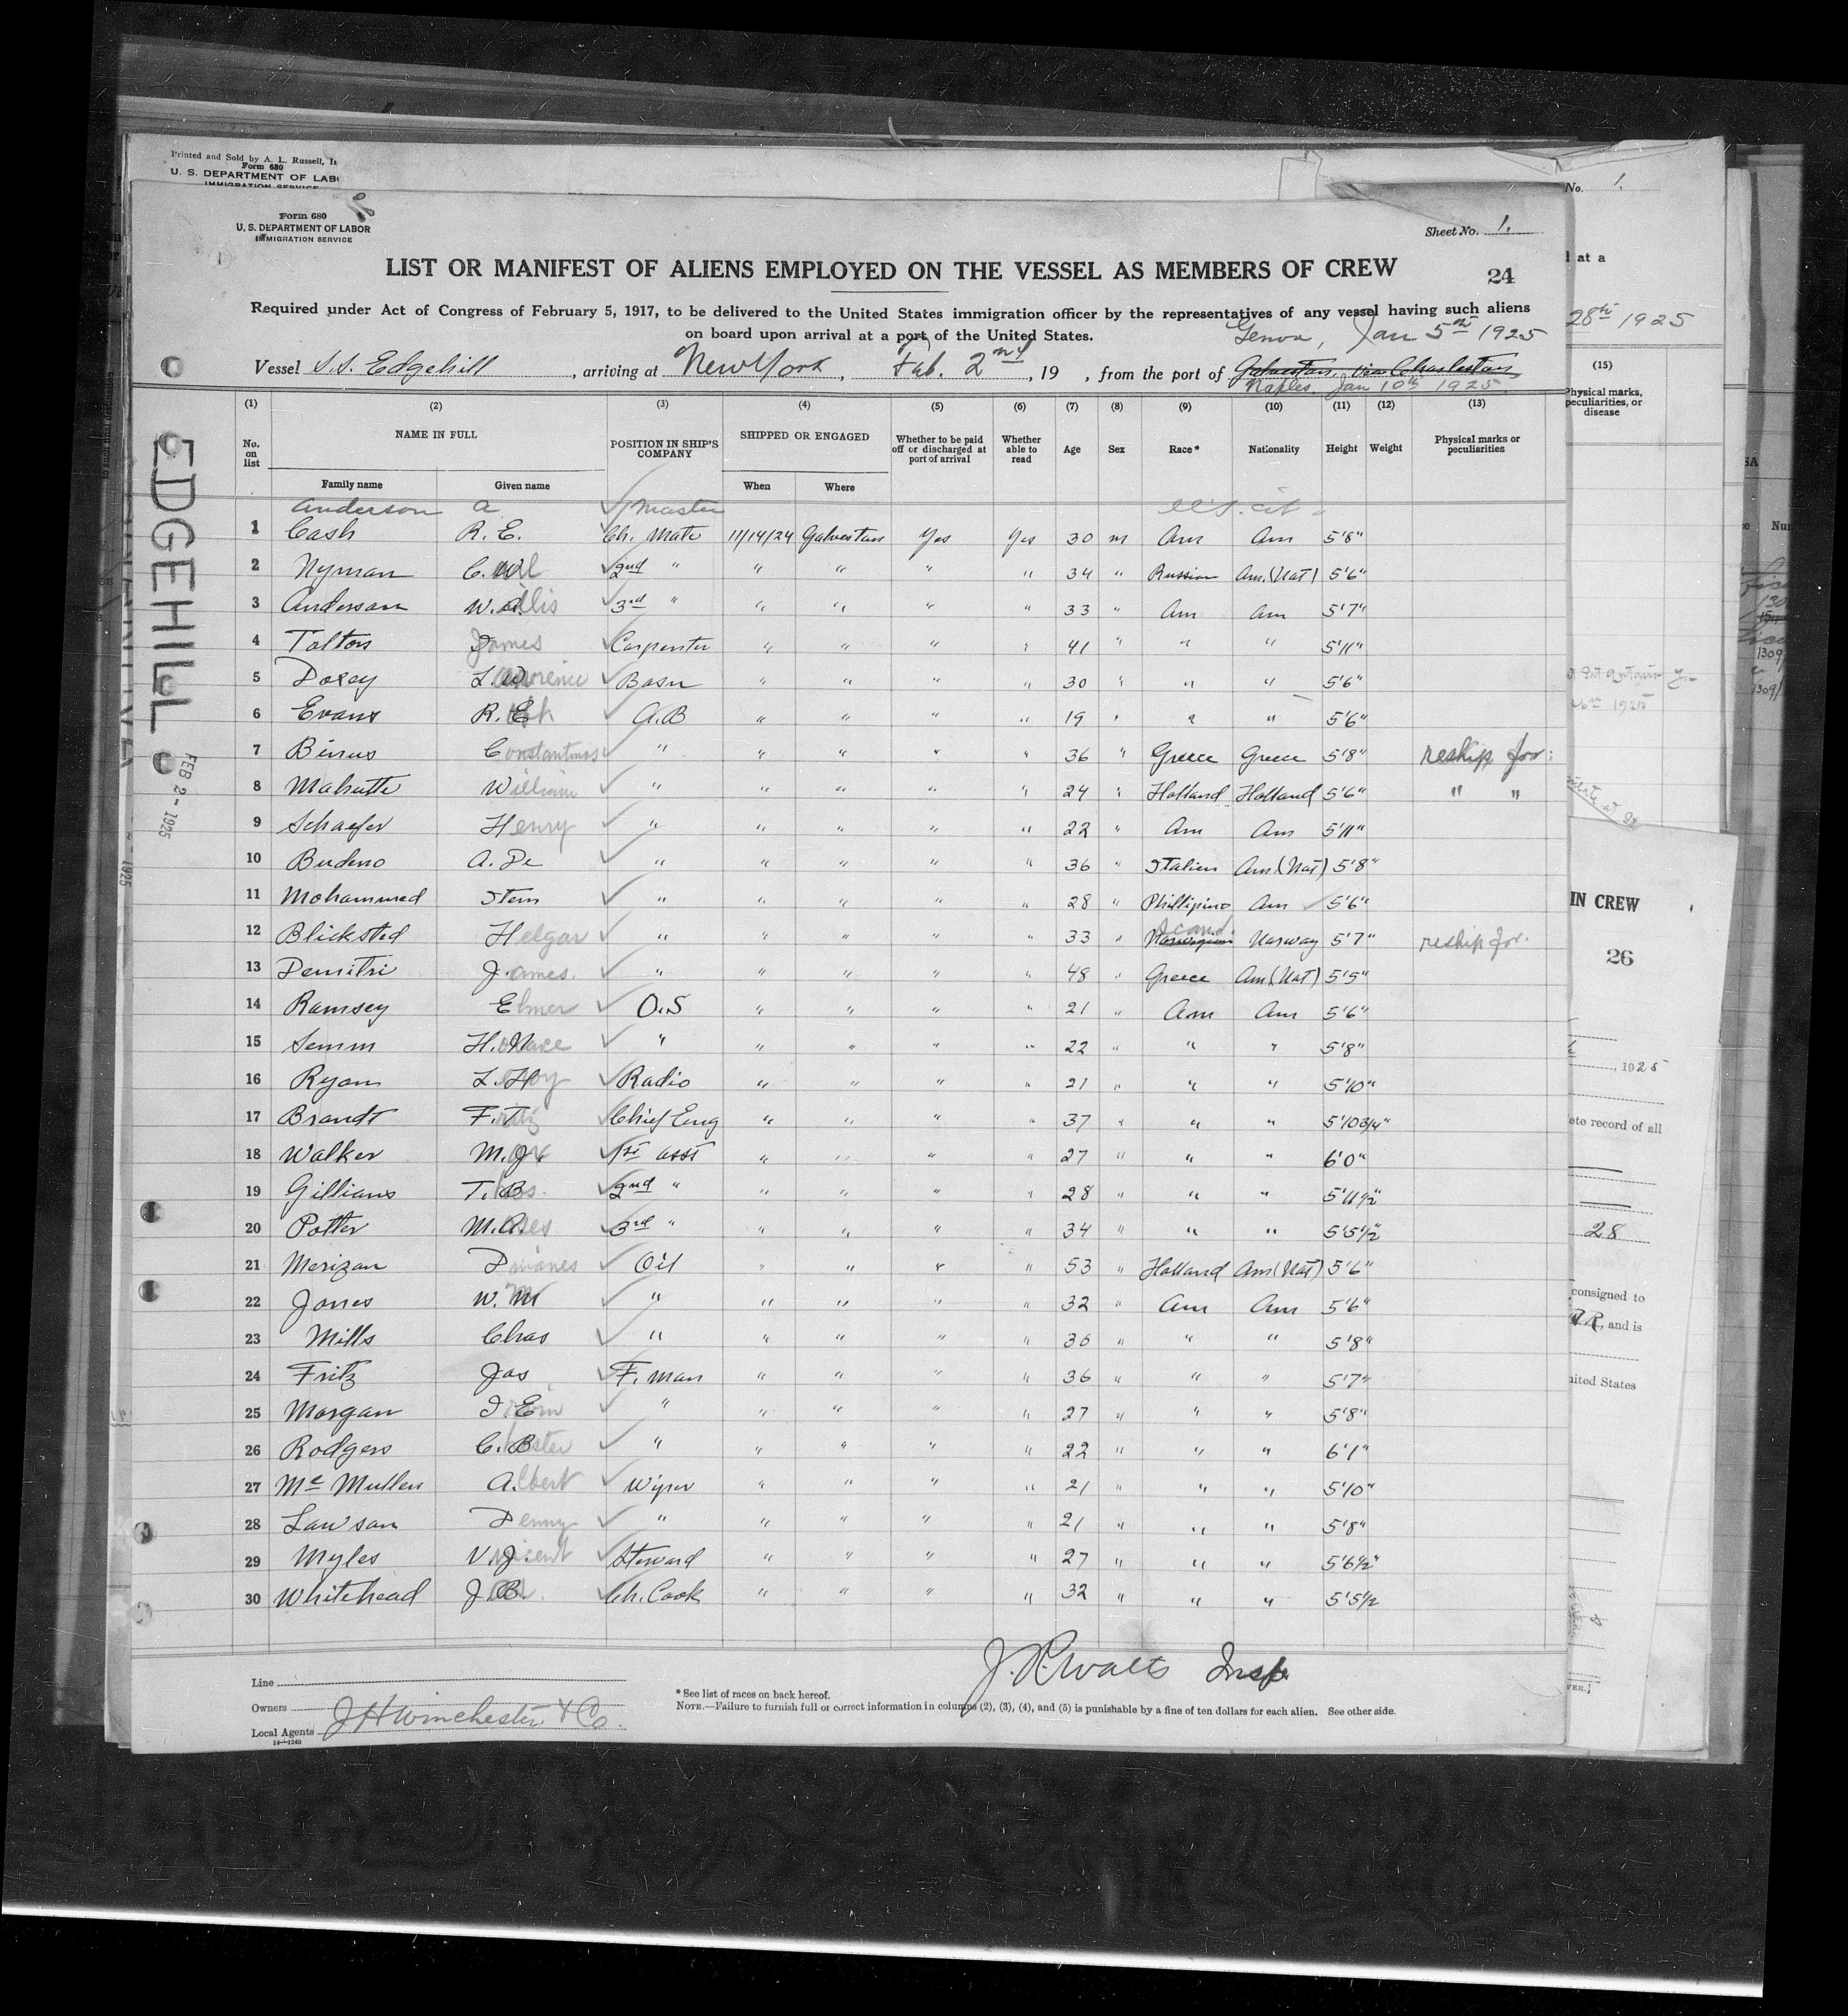 Printed and Sold by A. L. Russell, In
Form 680
U. S. DEPARTMENT OF LAB
IMMIGRATION SERVICE
No. 1.
Form 680
U. S. DEPARTMENT OF LABOR
IMMIGRATION SERVICE
Sheet No. 1.
LIST OR MANIFEST OF ALIENS EMPLOYED ON THE VESSEL AS MEMBERS OF CREW
24
Required under Act of Congress of February 5, 1917, to be delivered to the United States immigration officer by the representatives of any vessel having such aliens
on board upon arrival at a port of the United States.
Genoa, Jan 5th 1925
Vessel S.S. Edgehill, arriving at New York, Feb. 2nd, 19 , from the port of Galveston, via Charleston
Naples, Jan 10th 1925
(1) (2) (3) (4) (5) (6) (7) (8) (9) (10) (11) (12) (13)
No. on list NAME IN FULL POSITION IN SHIP'S COMPANY SHIPPED OR ENGAGED Whether to be paid off or discharged at port of arrival Whether able to read Age Sex Race* Nationality Height Weight Physical marks or peculiarities
Family name Given name When Where
Anderson A. Master U.S. cit
1 Cash R. E. Ch. Mate 11/14/24 Galveston Yes Yes 30 m Am Am 5'8"
2 Nyman C. 2nd " " " " " 34 " Russian Am. (Nat) 5'6"
3 Anderson W. 3rd " " " " " 33 " Am Am 5'7"
4 Tolton James Carpenter " " " " 41 " " " 5'11"
5 Dorey Lawrence Bosn " " " " 30 " " " 5'6"
6 Evans R. A.B " " " " 19 " " " 5'6"
7 Binus Constantinos " " " " " 36 " Greece Greece 5'8" reship for:
8 Mahutte William " " " " " 24 " Holland Holland 5'6" " "
9 Schaefer Henry " " " " " 22 " Am Am 5'11"
10 Budeno A. De " " " " " 36 " Italian Am. (Nat) 5'8"
11 Mohammed Stem " " " " " 28 " Phillipino Am 5'6"
12 Blicksted Helgar " " " " " 33 " Norwegian Scand. Norway 5'7" reship for.
13 Demitri James. " " " " " 48 " Greece Am (Nat) 5'5"
14 Ramsey Elmer O.S " " " " 21 " Am Am 5'6"
15 Semm H. " " " " " 22 " " " 5'8"
16 Ryan L. Radio " " " " 21 " " " 5'10"
17 Brandt F. Chief Eng " " " " 37 " " " 5'10 3/4"
18 Walker M. J. 1st asst " " " " 27 " " " 6'0"
19 Gillians T. B. 2nd " " " " " 28 " " " 5'11 1/2"
20 Potter M. A. 3rd " " " " " 34 " " " 5'5 1/2"
21 Merizan D Oil " " " " 53 " Holland Am (Nat) 5'6"
22 Jones W. M " " " " " 32 " Am Am 5'6"
23 Mills Chas " " " " " 36 " " " 5'8"
24 Fritz Jas F. man " " " " 36 " " " 5'7"
25 Morgan I. E " " " " " 27 " " " 5'8"
26 Rodgers C. B " " " " " 22 " " " 6'1"
27 Mc Mullen Albert Wiper " " " " 21 " " " 5'10"
28 Lawson Denny " " " " " 21 " " " 5'8"
29 Myles V. J. Steward " " " " 27 " " " 5'6 1/2"
30 Whitehead J. B. Ch. Cook " " " " 32 " " " 5'5 1/2
J. R. Walts Insp.
Line
Owners
Local Agents J H Winchester & Co.
14—1240
* See list of races on back hereof.
NOTE.—Failure to furnish full or correct information in columns (2), (3), (4), and (5) is punishable by a fine of ten dollars for each alien. See other side.
EDGEHILL
FEB 2 - 1925
1925
d at a
28th 1925
(15)
Physical marks, peculiarities, or disease
IN CREW
26
, 1925
ete record of all
28
consigned to
, and is
nited States